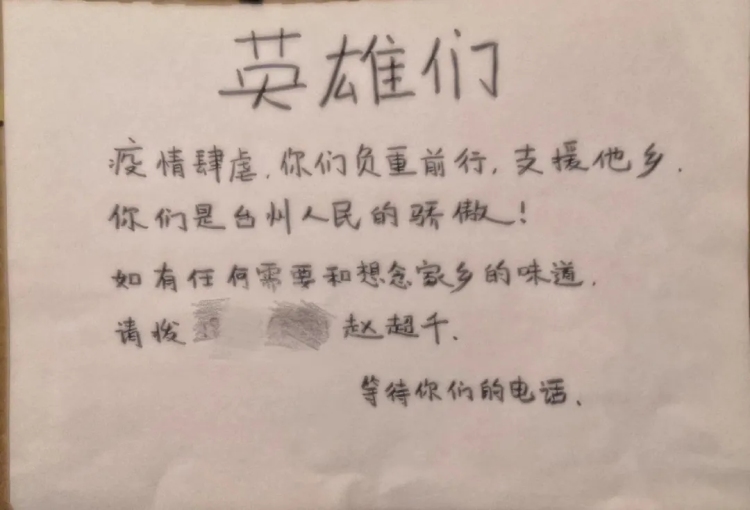 英雄们
疫情肆虐,你们负重前行,支援他乡.
你们是台州人民的骄傲!
如有任何需要和想念家乡的味道.
请拨 赵超千.
等待你们的电话.